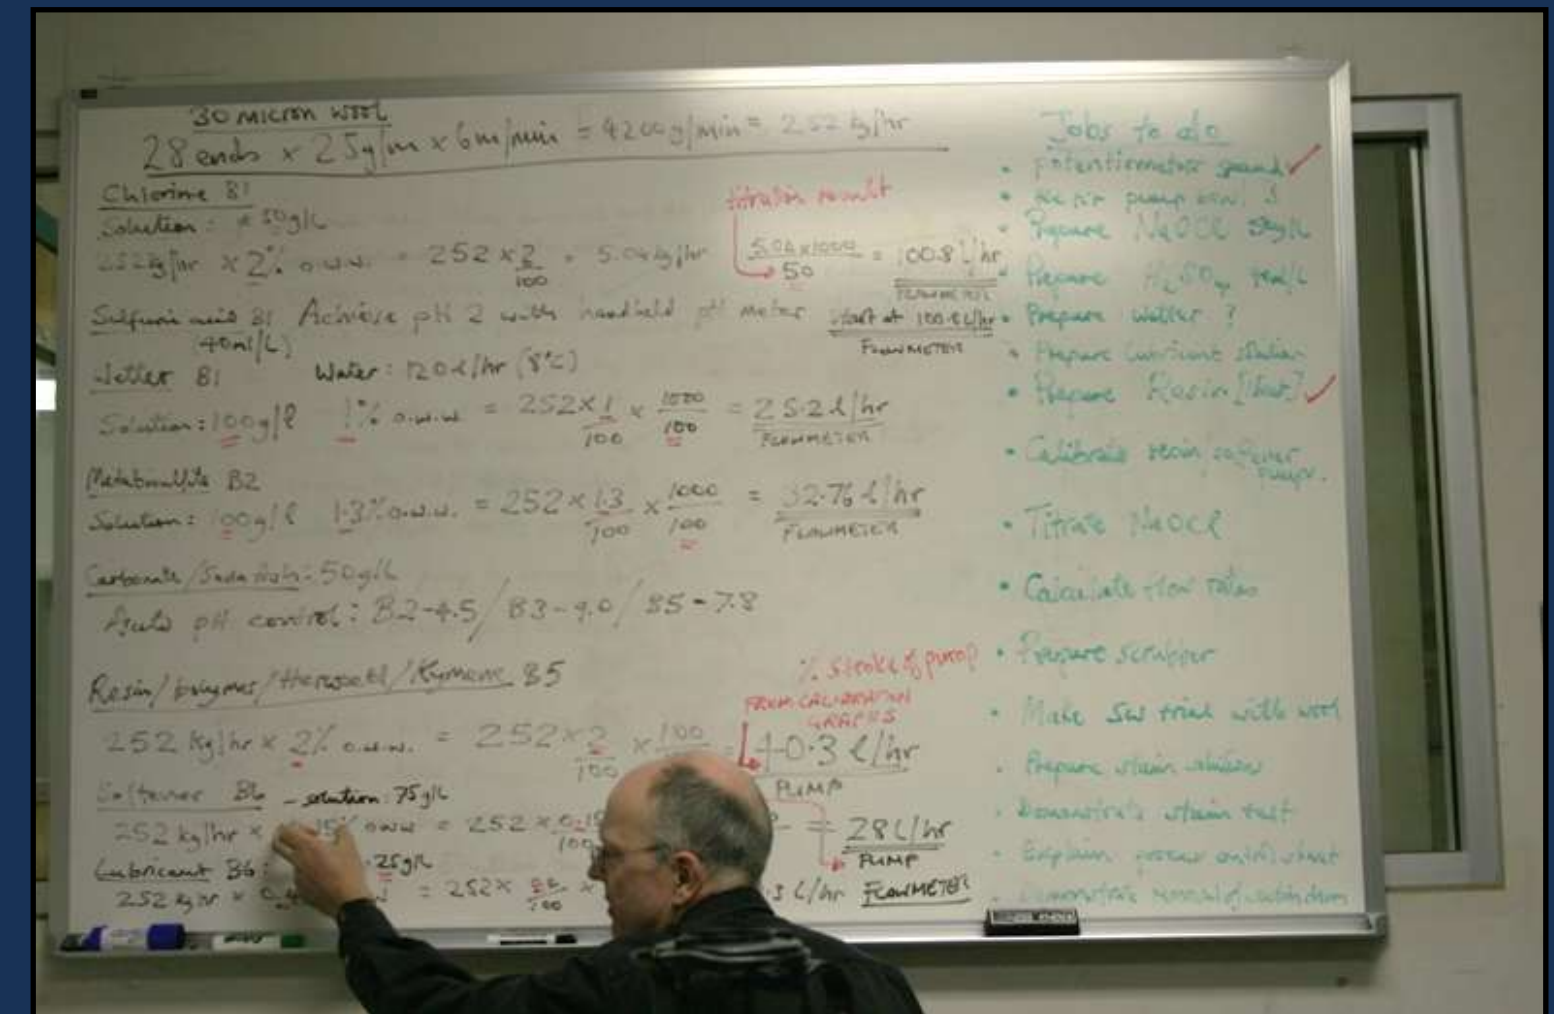 30 MICRON WOOL
28 ends x 25g/m x 6m/min = 4200g/min = 252 kg/hr
Chlorine B1
Solution: 50g/L
252kg/hr x 2% o.w.w. = 252 x 2/100 = 5.04kg/hr
titration result
5.04x1000/50 = 100.8 L/hr
FLOWMETER
Sulfuric acid B1 Achieve pH 2 with handheld pH meter start at 100.8 L/hr
(40ml/L)
FLOWMETER
Wetter B1 Water: 120 l/hr (8°C)
Solution: 100g/l 1% o.w.w. = 252 x 1/100 x 1000/100 = 25.2 l/hr
FLOWMETER
Metabisulfite B2
Solution: 100g/l 1.3% o.w.w. = 252 x 1.3/100 x 1000/100 = 32.76 l/hr
FLOWMETER
Carbonate/Soda Ash: 50g/L
pH control: B2-4.5 / B3-9.0 / B5-7.8
Resin/polymer/Hercosett/Kymene B5
% stroke of pump
FROM CALIBRATION
GRAPHS
252 kg/hr x 2% o.w.w. = 252 x 2/100 x 100 40.3 l/hr
PUMP
Softener B6 - solution: 75g/L
252 kg/hr x 15% oww = 252 x 0.15/100 = 28 L/hr
PUMP
Lubricant B6: 25g/L
252 kg/hr x = 252 x /100 x L/hr FLOWMETER
Jobs to do
• potentiometer
• pump
• Prepare NaOCl 50g/L
• Prepare H2SO4 40ml/L
• Prepare wetter ?
• Prepare lubricant solution
• Prepare Resin
• Calibrate resin/softener pumps.
• Titrate NaOCl
• Calculate flow rates
• Prepare scrubber
• Make SW trial with wool
• Prepare stain solution
• Demonstrate stain test
• Explain process
• Demonstrate